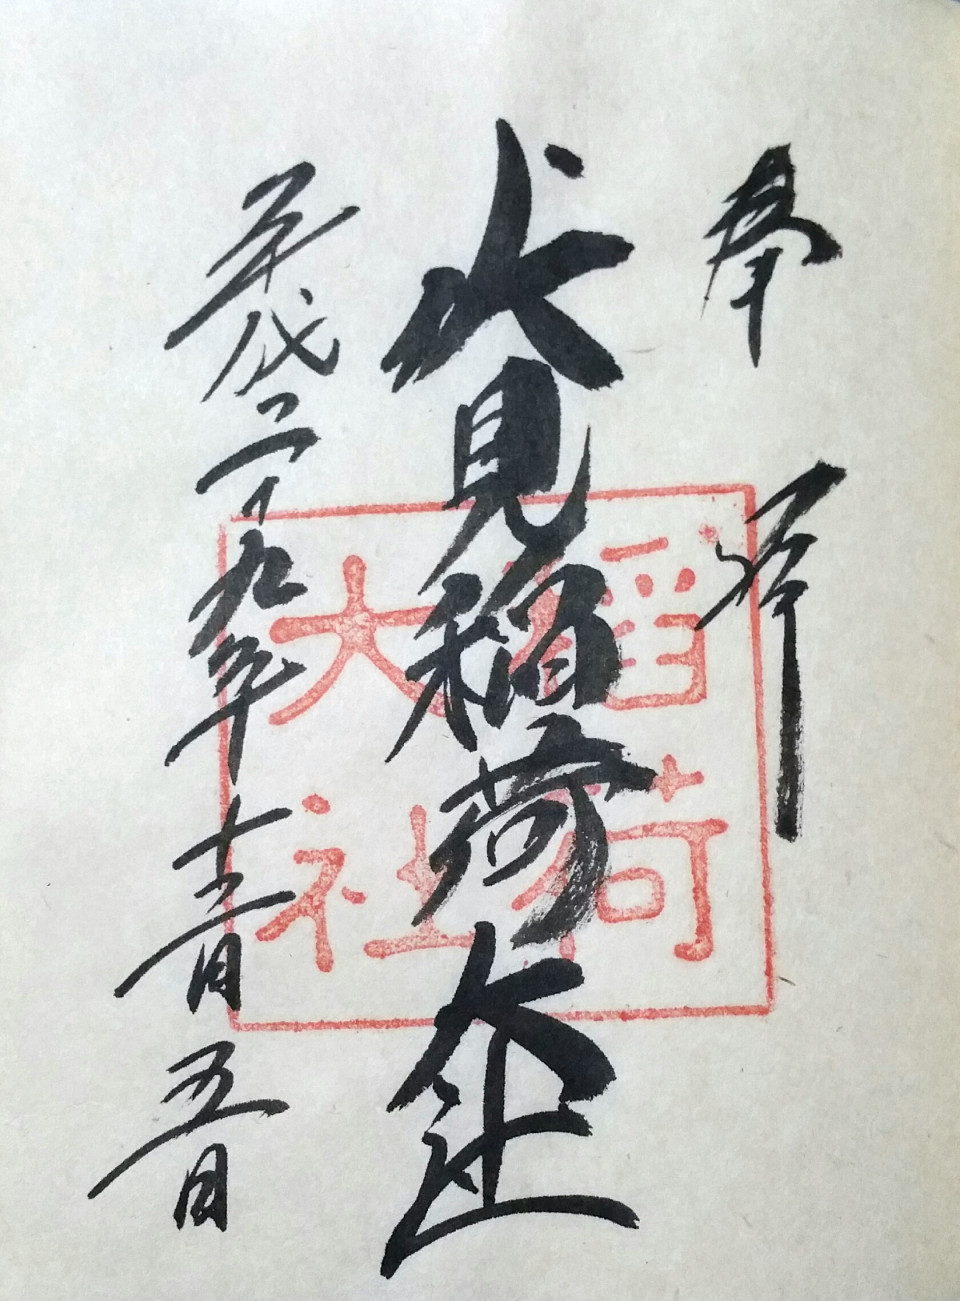 奉拝
伏見稲荷大社
平成二十九年十二月五日
稲荷
大社